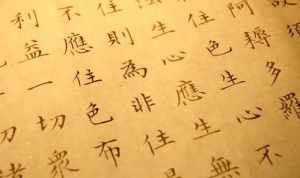 阿耨多羅
住色生心不
生心應生無
住則為非住
不應住色布
利益一切眾
切